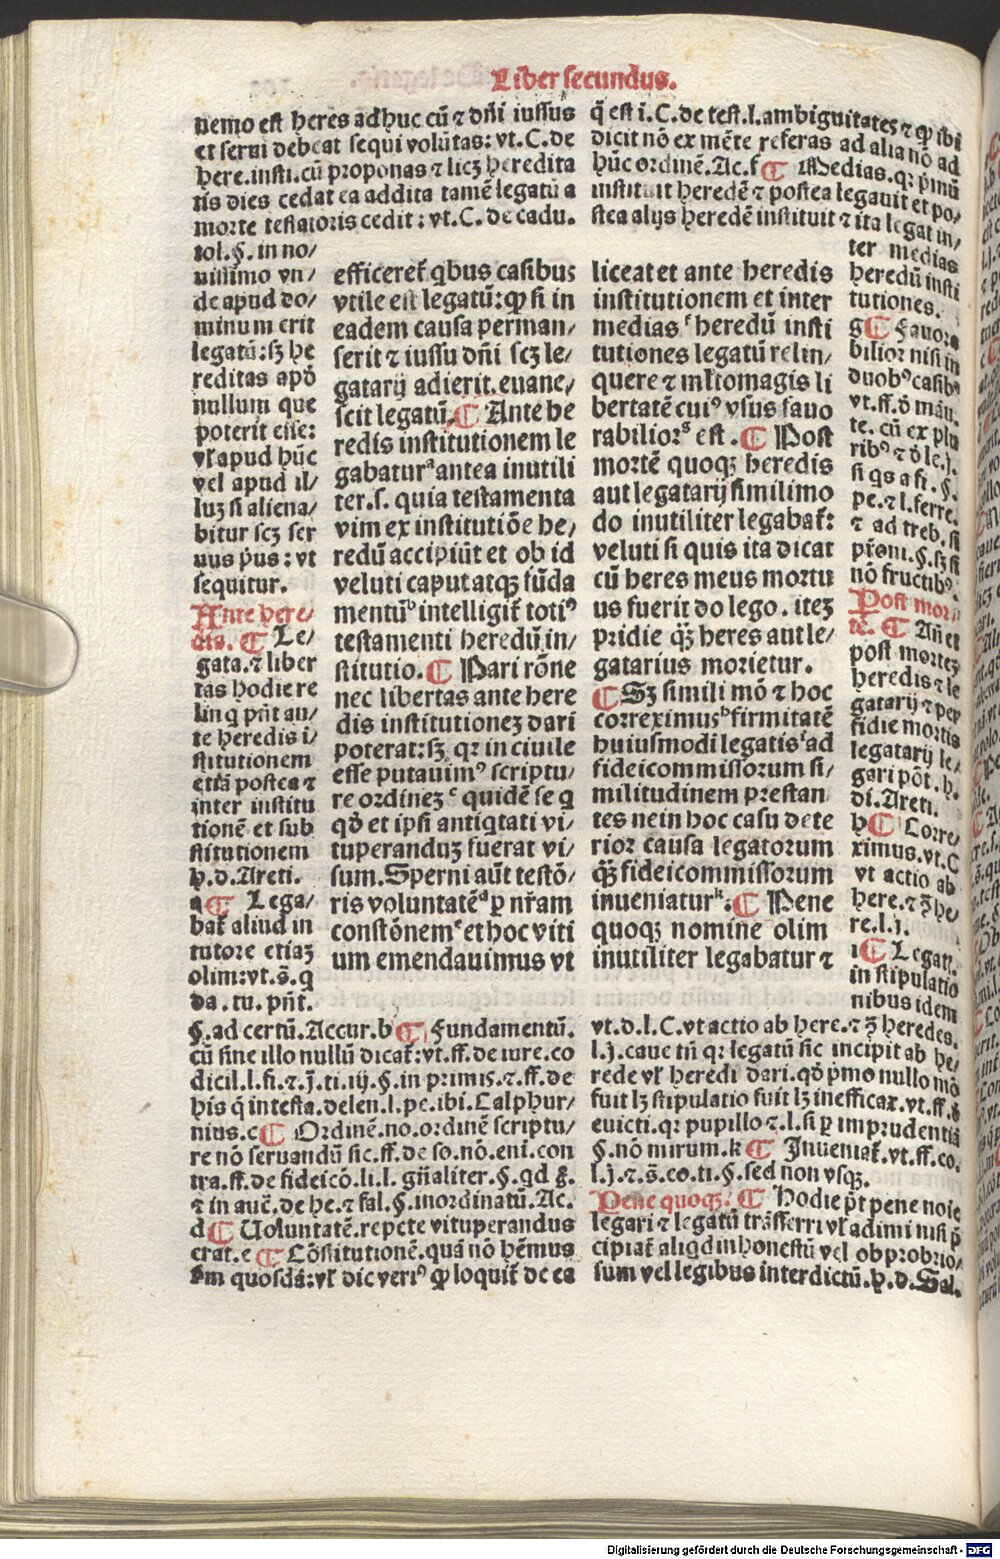 Liber secundus.
nemo est heres adhuc cū ⁊ dñi iussus
et serui debeat sequi volūtas: vt. C. de
here. insti. cū proponas ⁊ licꝫ heredita
tis dies cedat ea addita tamē legatū a
morte testatoris cedit: vt. C. de cadu.
tol. §. in no/
uissimo vn/
de apud do/
minum erit
legatū: sꝫ he
reditas apď
nullum que
poterit esse:
vľ apud hūc
vel apud il/
luꝫ si aliena/
bitur scꝫ ser
uus pus: vt
sequitur.
Ante here/
dis. ¶ Le/
gata. ⁊ liber
tas hodie re
linq pñt an/
te heredis i/
stitutionem
etiā postea ⁊
inter institu
tionē et sub
stitutionem
h. d. Areti.
a ¶ Lega/
bat̄ aliud in
tutore etiaꝫ
olim: vt. s̄. q
da. tu. pñt.
§. ad certū. Accur. b ¶ Fundamentū.
cū sine illo nullū dicat̄: vt. ff. de iure. co
dicil. l. fi. ⁊. j. ti. iij. §. in primis. ⁊. ff. de
his q̄ intesta. delen. l. pe. ibi. Calphur/
nius. c ¶ Ordinē. no. ordinē scriptu/
re nō seruandū sic. ff. de so. nō. eni. con
tra. ff. de fideicō. li. l. gñaliter. §. qd ḡ.
⁊ in auc̄. de he. ⁊ fal. §. inordinatū. Ac.
d ¶ Uoluntatē. repete vituperandus
erat. e ¶ Cōstitutionē. quā nō hēmus
quosdā: vľ dic veriꝰ ꝙ loquit̄ de ea
efficeret̄ qbus casibus
vtile est legatū: ꝙ si in
eadem causa perman/
serit ⁊ iussu dñi scꝫ le/
gatarij adierit. euane/
scit legatū. ¶ Ante he
redis institutionem le
gabatur a antea inutili
ter. s. quia testamenta
vim ex institutiōe he/
redū accipiūt et ob id
veluti caput atqꝫ fūda
mentū b intelligit̄ totiꝰ
testamenti heredū in/
stitutio. ¶ Pari rōne
nec libertas ante here
dis institutioneꝫ dari
poterat: sꝫ qꝛ in ciuile
esse putauimꝰ scriptu/
re ordineꝫ c quidē se q
qď et ipsi antiqtati vi/
tuperanduꝫ fuerat vi/
sum. Sperni aūt testō/
ris voluntatē d p nr̄am
constōnem e et hoc viti
um emendauimus vt
q̄ est i. C. de test. l. ambiguitates ⁊ ꝙ ibi
dicit nō ex mēte referas ad alia nō ad
hūc ordinē. Ac. f ¶ Medias. qꝛ pmū
instituit heredē ⁊ postea legauit et po/
stea alijs heredē instituit ⁊ ita legat in/
ter medias
heredū insti
tutiones.
g ¶ Fauora
bilior nisi in
duobꝰ casibꝰ
vt. ff. ď mau.
te. cū ex plu
ribꝰ ⁊ ď le. j.
si qs a fi. §.
pe. ⁊ l. ferre.
⁊ ad treb. si
pr̄oni. §. sꝫ si
nō fructibꝰ.
Post mor/
tē. ¶ Añ et
post morteꝫ
heredis ⁊ le
gatarij ⁊ per
fidie mortis
legatarij le/
gari pōt. h.
di. Areti.
h ¶ Corre/
ximus. vt. C
vt actio ab
here. ⁊ ꝯ he/
re. l. j.
i ¶ Legat̄.
in stipulatio
nibus idem
liceat et ante heredis
institutionem et inter
medias f heredū insti
tutiones legatū relin/
quere ⁊ mľtomagis li
bertatē cuiꝰ vsus fauo
rabilior g est. ¶ Post
mortē quoqꝫ heredis
aut legatarij simili mo
do inutiliter legabat̄:
veluti si quis ita dicat
cū heres meus mortu
us fuerit do lego. iteꝫ
pridie qꝫ heres aut le/
gatarius morietur.
¶ Sꝫ simili mō ⁊ hoc
correximus h firmitatē
huiusmodi legatis i ad
fideicommissorum si/
militudinem prestan
tes ne in hoc casu dete
rior causa legatorum
qꝫ fideicommissorum
inueniatur k. ¶ Pene
quoqꝫ nomine olim
inutiliter legabatur ⁊
vt. d. l. C. vt actio ab here. ⁊ ꝯ heredes.
l. j. caue tñ qꝛ legatū sic incipit ab he/
rede vľ heredi dari. qď pmo nullo mō
fuit lꝫ stipulatio fuit lꝫ inefficax. vt. ff. ď
euicti. qꝛ pupillo ⁊. l. si p imprudentiā
§. nō mirum. k ¶ Inueniat̄. vt. ff. co.
l. j. ⁊. s̄. co. ti. §. sed non vsqꝫ.
Pene quoqꝫ. ¶ Hodie pt̄ pene noie
legari ⁊ legatū trāsferri vľ adimi nisi p̄
cipiat̄ aliqd inhonestū vel obprobrio/
sum vel legibus interdictū. h. d. Sal.
Digitalisierung gefördert durch die Deutsche Forschungsgemeinschaft - DFG